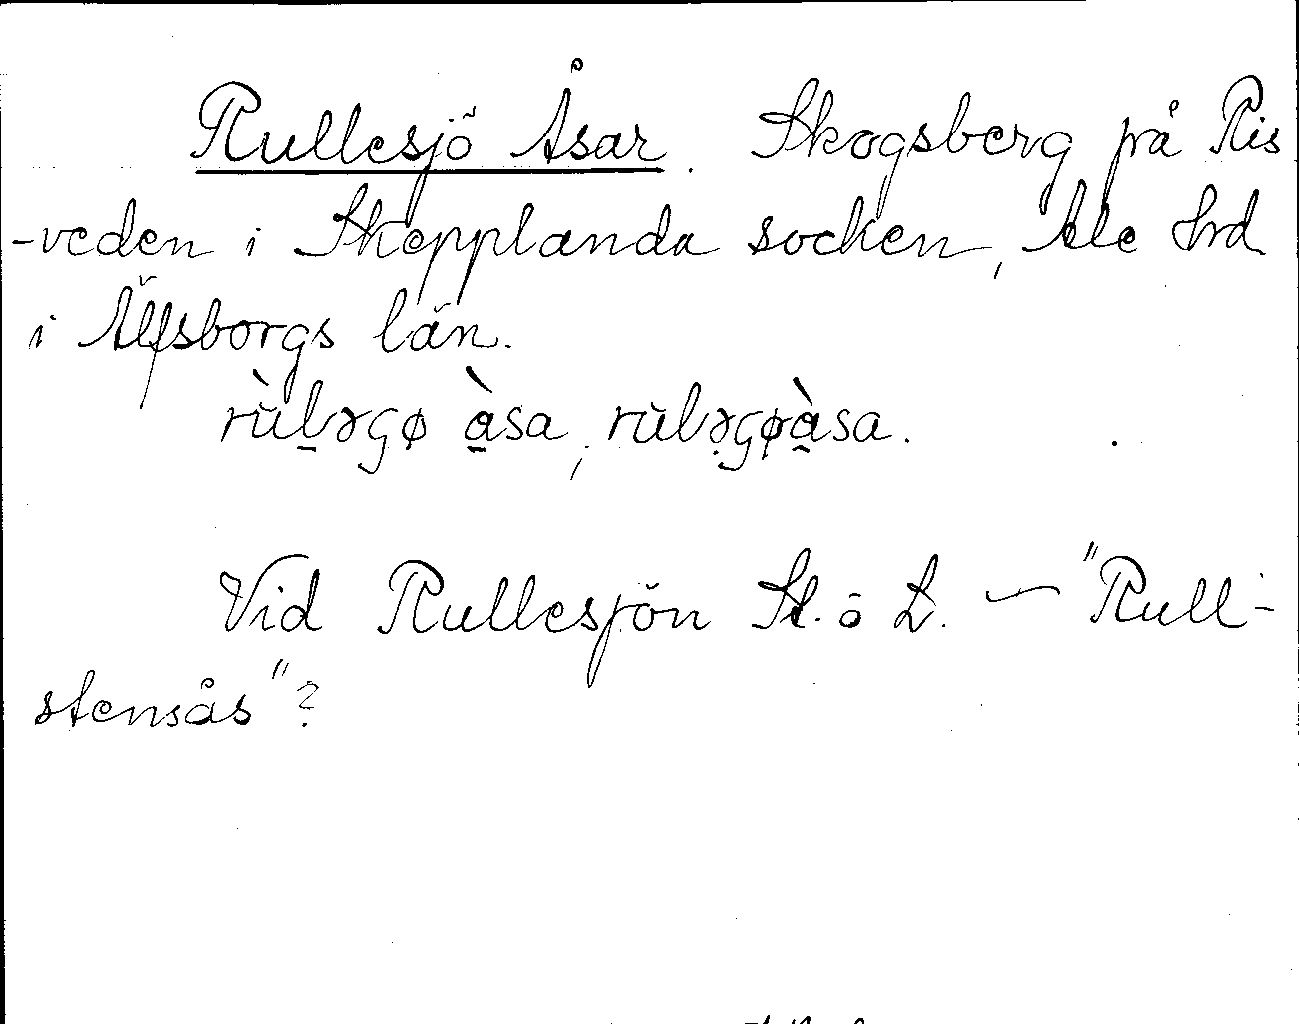 Rullesjö Åsar. Skogsberg på Ris
-veden i Skepplanda socken, Ale hrd
i Älfsborgs län.
rùlǝςø àsa, rulǝςøàsa.
Vid Rullesjön St. ö L. — "Rull-
stensås"?